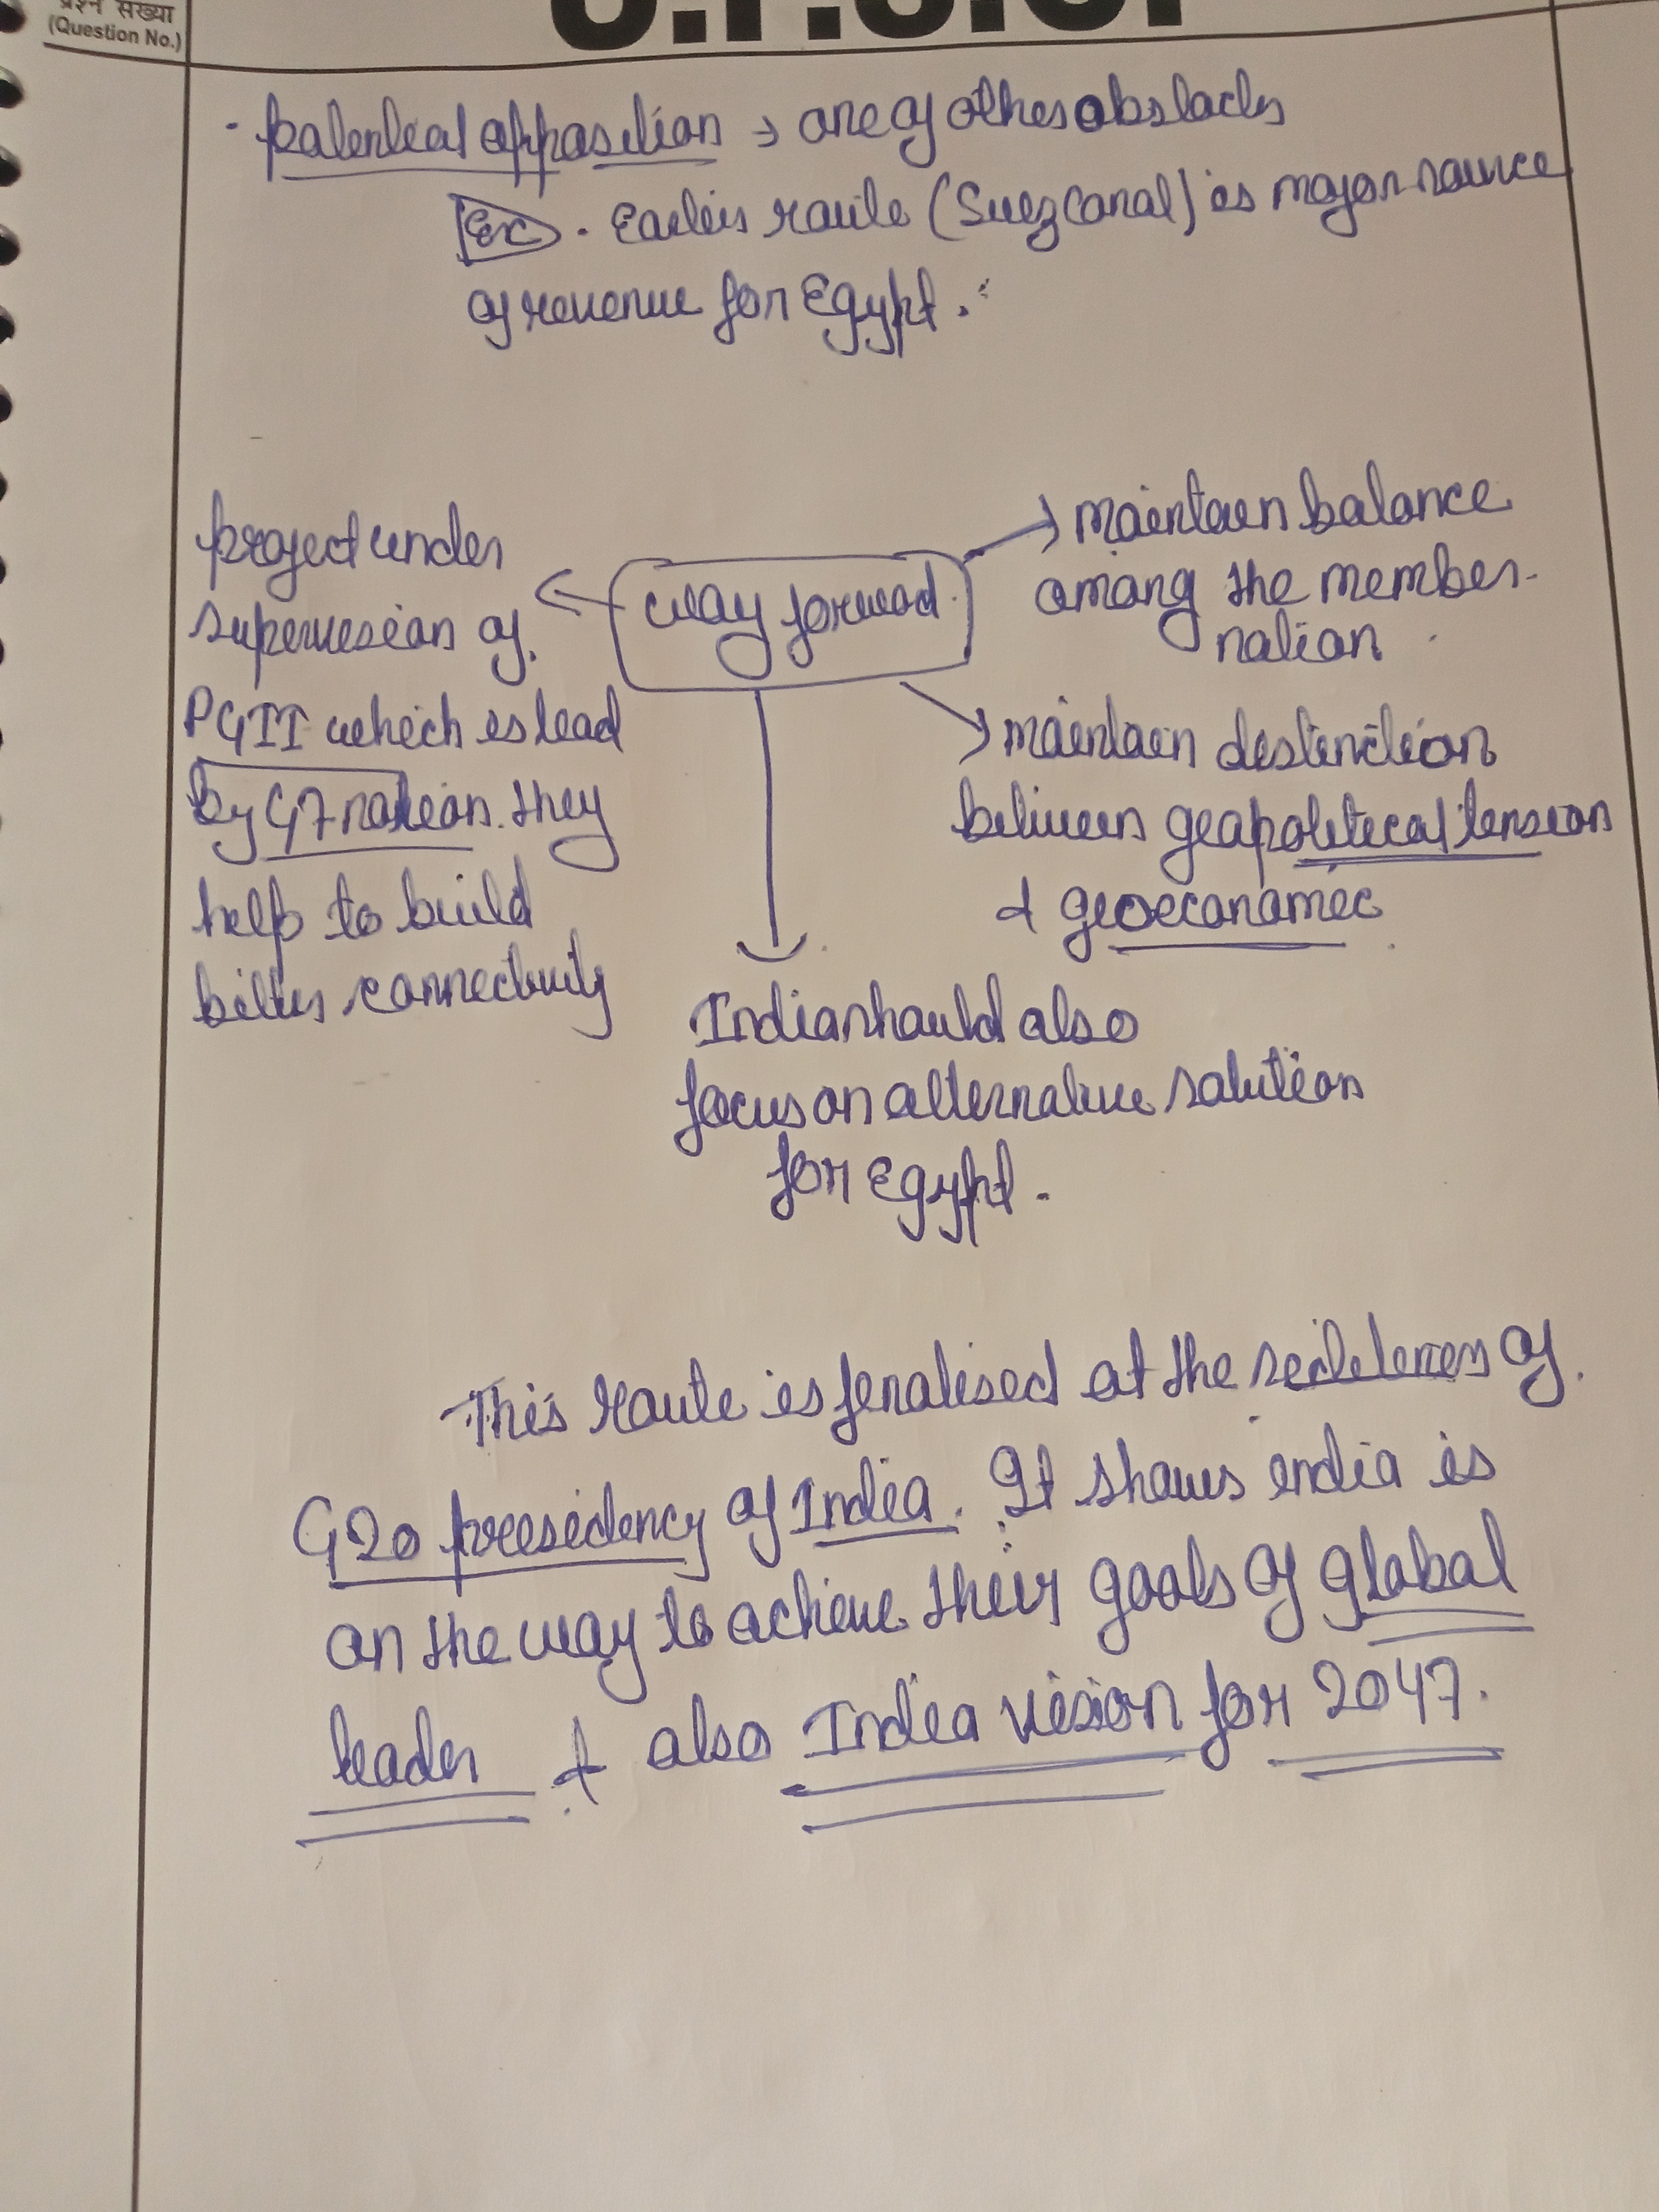 प्रश्न संख्या
(Question No.)
U.P.S.C.
· potential opposition → one of other obstacles
Ex · Earlier route (Suez Canal) is major source
of revenue for Egypt.
project under
supervision of
PGII which is lead
by G7 nation. they
help to build
better connectivity
way forward
maintain balance
among the member
nation
maintain distinction
between geopolitical tension
& geoeconomic
India should also
focus on alternative solution
for Egypt.
This route is finalised at the of
G20 presidency of India. It shows india is
on the way to achieve their goals of global
leader & also India vision for 2047.